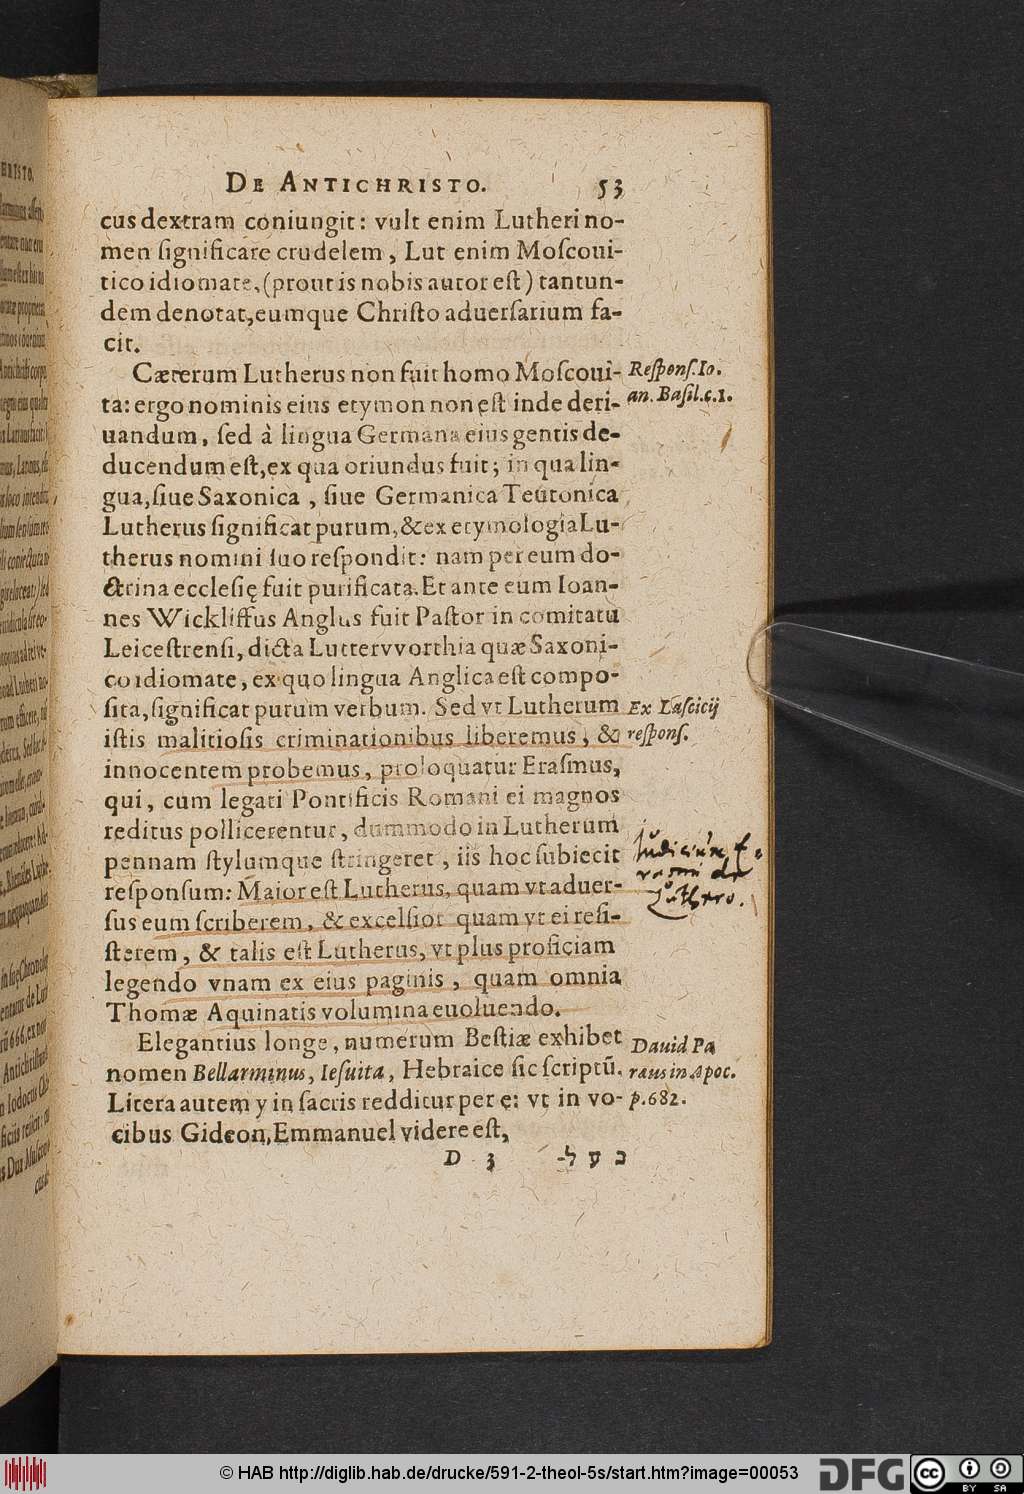 DE ANTICHRISTO. 53
cus dextram coniungit: vult enim Lutheri no-
men ſignificare crudelem, Lut enim Moſcoui-
tico idiomate, (prout is nobis autor eſt) tantun-
dem denotat, eumque Chriſto aduerſarium fa-
cit.
Cæterum Lutherus non fuit homo Moſcoui-
ta: ergo nominis eius etymon non eſt inde deri-
uandum, ſed à lingua Germana eius gentis de-
ducendum eſt, ex qua oriundus fuit; in qua lin-
gua, ſiue Saxonica, ſiue Germanica Teutonica,
Lutherus ſignificat purum, & ex etymologia Lu-
therus nomini ſuo reſpondit: nam per eum do-
ctrina eccleſię fuit purificata. Et ante eum Ioan-
nes Wickliffus Anglus fuit Paſtor in comitatu
Leiceſtrenſi, dicta Luttervvorthia quæ Saxoni-
co idiomate, ex quo lingua Anglica eſt compo-
ſita, ſignificat purum verbum. Sed vt Lutherum
iſtis malitioſis criminationibus liberemus, &
innocentem probemus, proloquatur Eraſmus,
qui, cum legati Pontificis Romani ei magnos
reditus pollicerentur, dummodo in Lutherum
pennam ſtylumque ſtringeret, iis hoc ſubiecit
reſponſum: Maior eſt Lutherus, quam vt aduer-
ſus eum ſcriberem, & excelſior quam vt ei reſi-
ſterem, & talis eſt Lutherus, vt plus proficiam
legendo vnam ex eius paginis, quam omnia
Thomæ Aquinatis volumina euoluendo.
Elegantius longe, numerum Beſtiæ exhibet
nomen Bellarminus, Ieſuita, Hebraice ſic ſcriptū.
Litera autem y in ſacris redditur per e: vt in vo-
cibus Gideon, Emmanuel videre eſt,
D 3 בעל-
Reſponſ. Io.
an. Baſil. c. 1.
Ex Laſcicij
reſponſ.
Iudicium E-
rasmi de
Luthero.
Dauid Pa
raus in Apoc.
p. 682.
HRISTO.
© HAB http://diglib.hab.de/drucke/591-2-theol-5s/start.htm?image=00053
DFG
cc BY SA